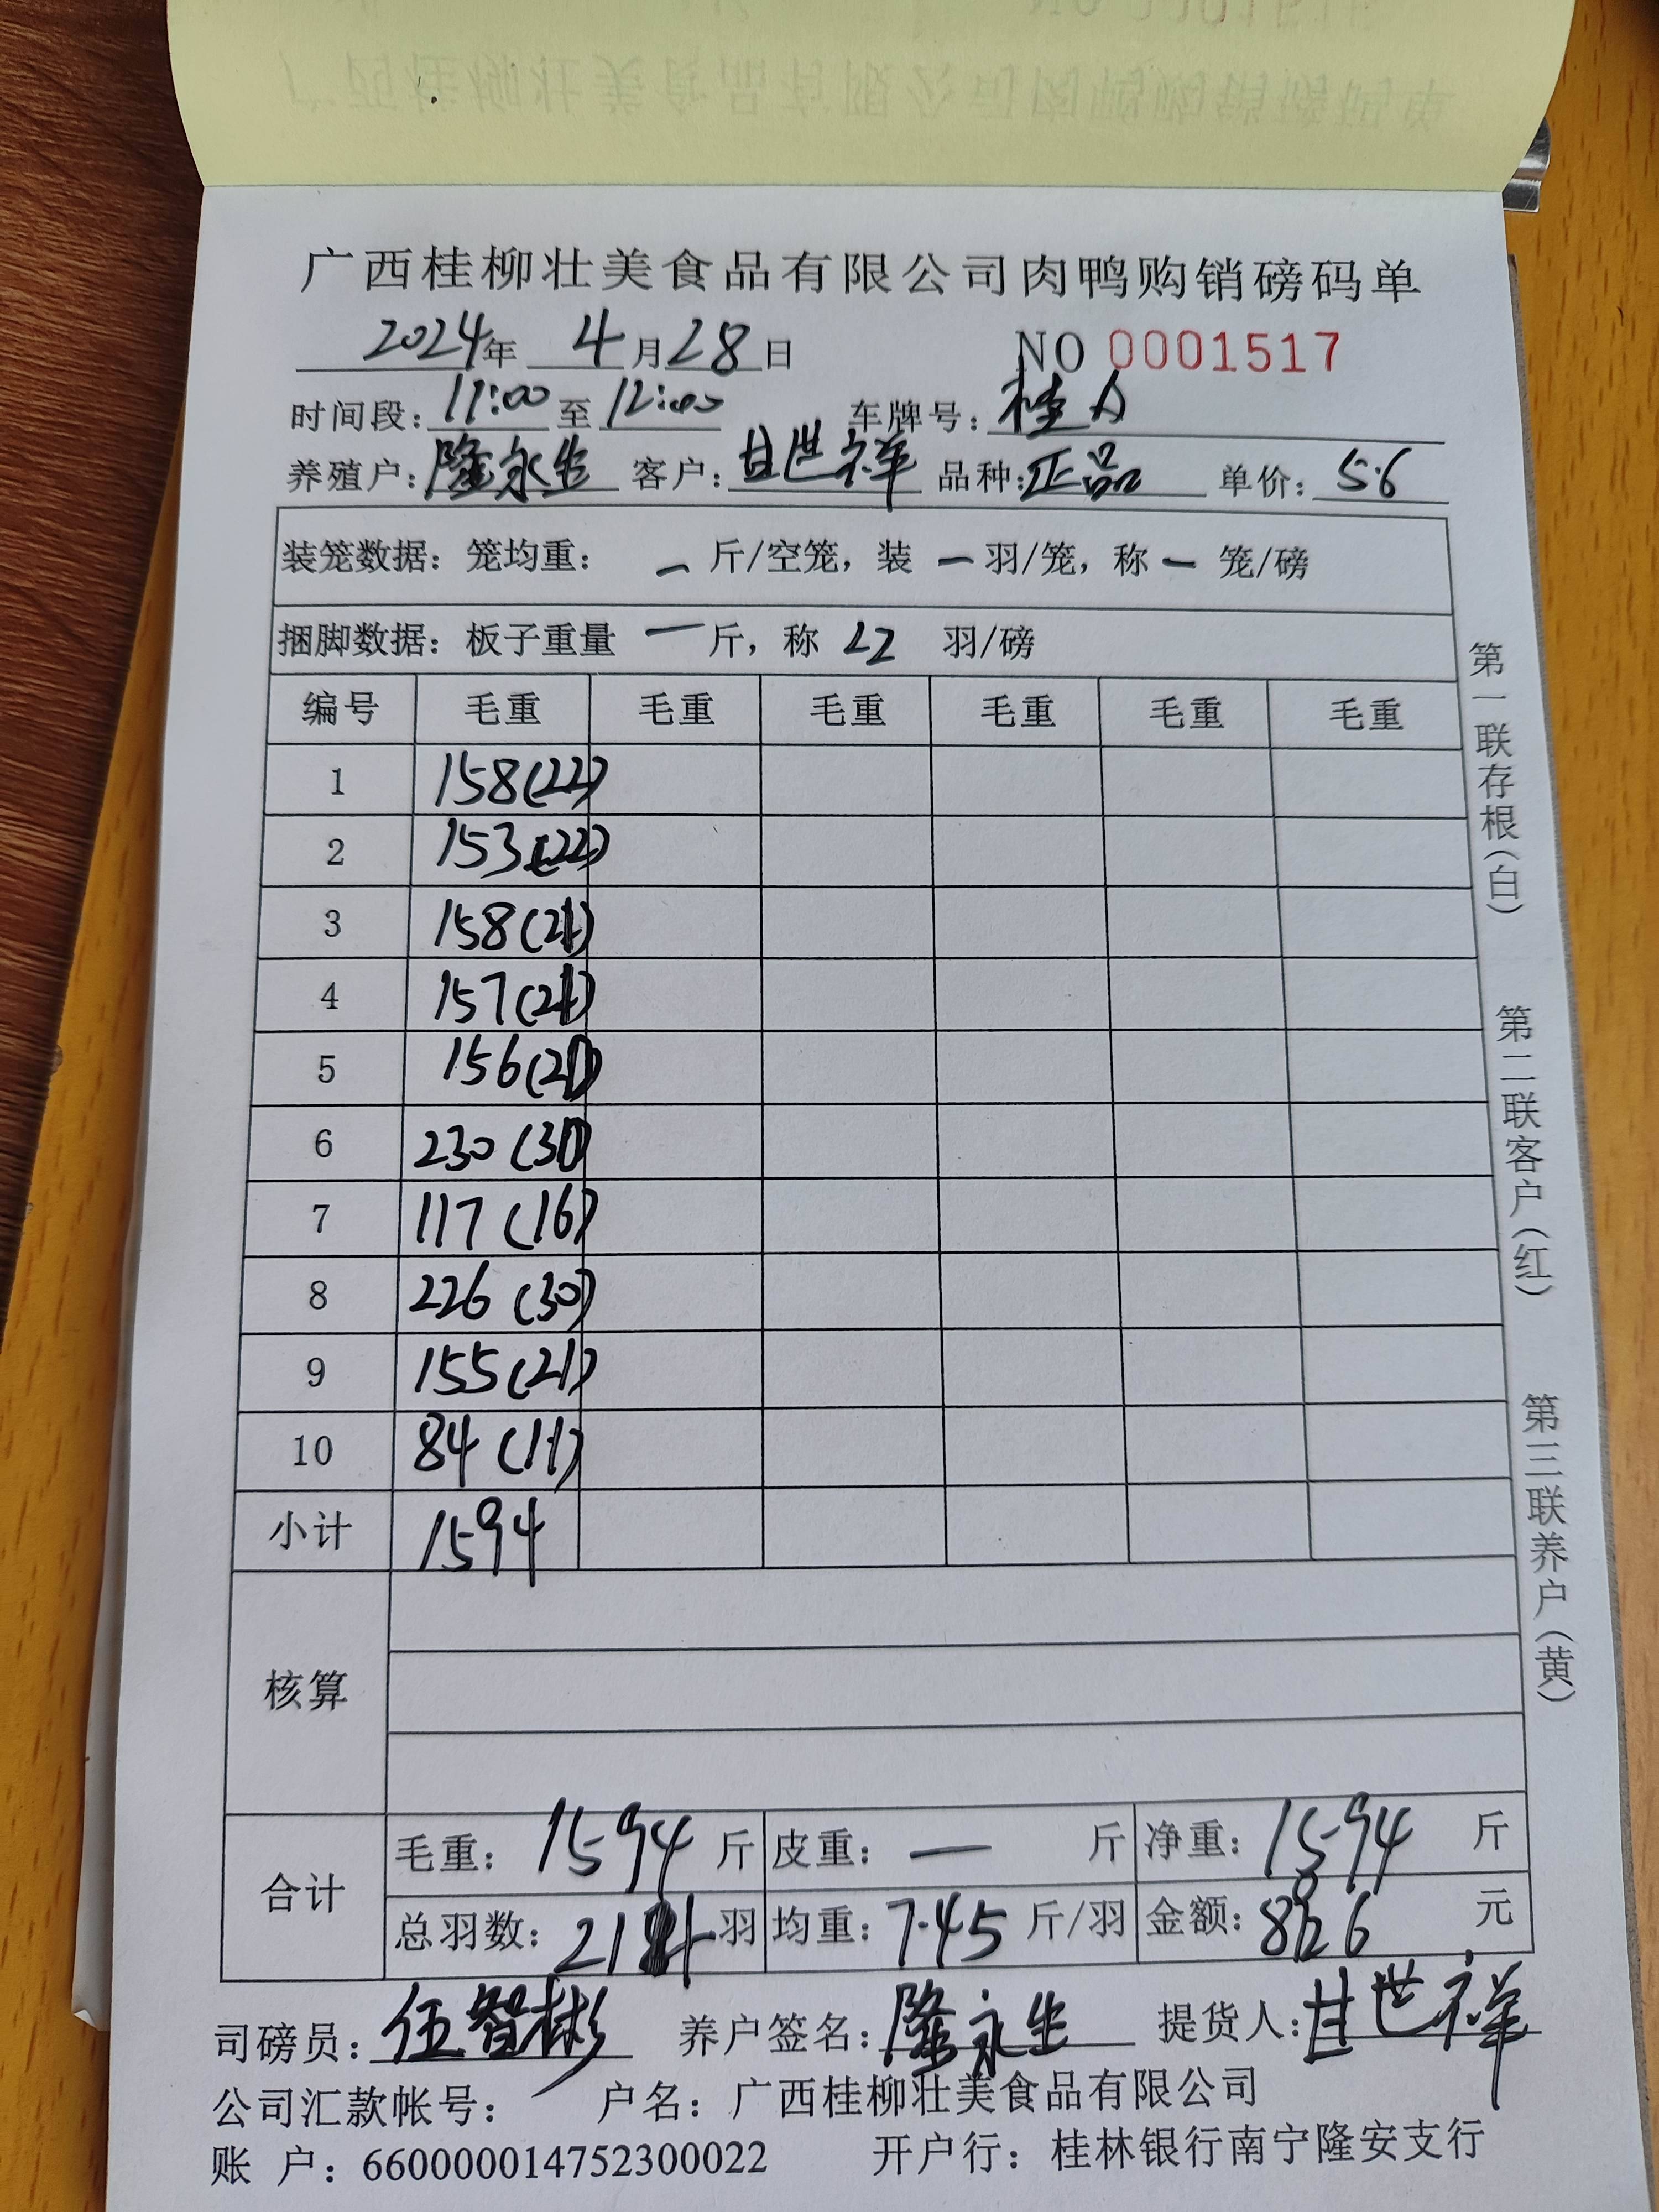 广西桂柳壮美食品有限公司肉鸭购销磅码单
2024年 4月28日 NO 0001517
时间段: 11:00 至 12:00 车牌号: 桂A
养殖户: 隆永生 客户: 甘世祥 品种: 正品 单价: 5.6
装笼数据: 笼均重: — 斤/空笼, 装 — 羽/笼, 称 — 笼/磅
捆脚数据: 板子重量 — 斤, 称 22 羽/磅
编号 毛重 毛重 毛重 毛重 毛重 毛重
1 158(22)
2 153(22)
3 158(21)
4 157(21)
5 156(21)
6 230(31)
7 117(16)
8 226(30)
9 155(21)
10 84(11)
小计 1594
核算
合计
毛重: 1594 斤 皮重: — 斤 净重: 1594 斤
总羽数: 羽 均重: 7.45 斤/羽 金额: 元
司磅员: 伍智彬 养户签名: 隆永生 提货人: 甘世祥
公司汇款帐号: 户名: 广西桂柳壮美食品有限公司
账 户: 660000014752300022 开户行: 桂林银行南宁隆安支行
第一联存根(白) 第二联客户(红) 第三联养户(黄)